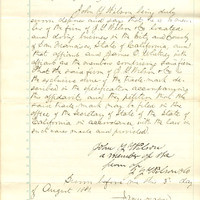 John Y Wilson being duly
sworn deposes and says that he is a member
of the firm of J Y Wilson & Co located
and doing business in the City and County
of San Francisco, State of California, and
that affiant and
affiant as the members comprising said firm
that the said firm of J Y Wilson & Co is
the exclusive owner of the trade mark described
in the specification accompanying
this affidavit, and this petition that the
said trade mark may be filed in the
office of the Secretary of State of the State of
California in accordance with the law in
such case made and provided
John Y Wilson
a member of the
firm of
J Y Wilson & Co
Sworn before me this 5th day
of August